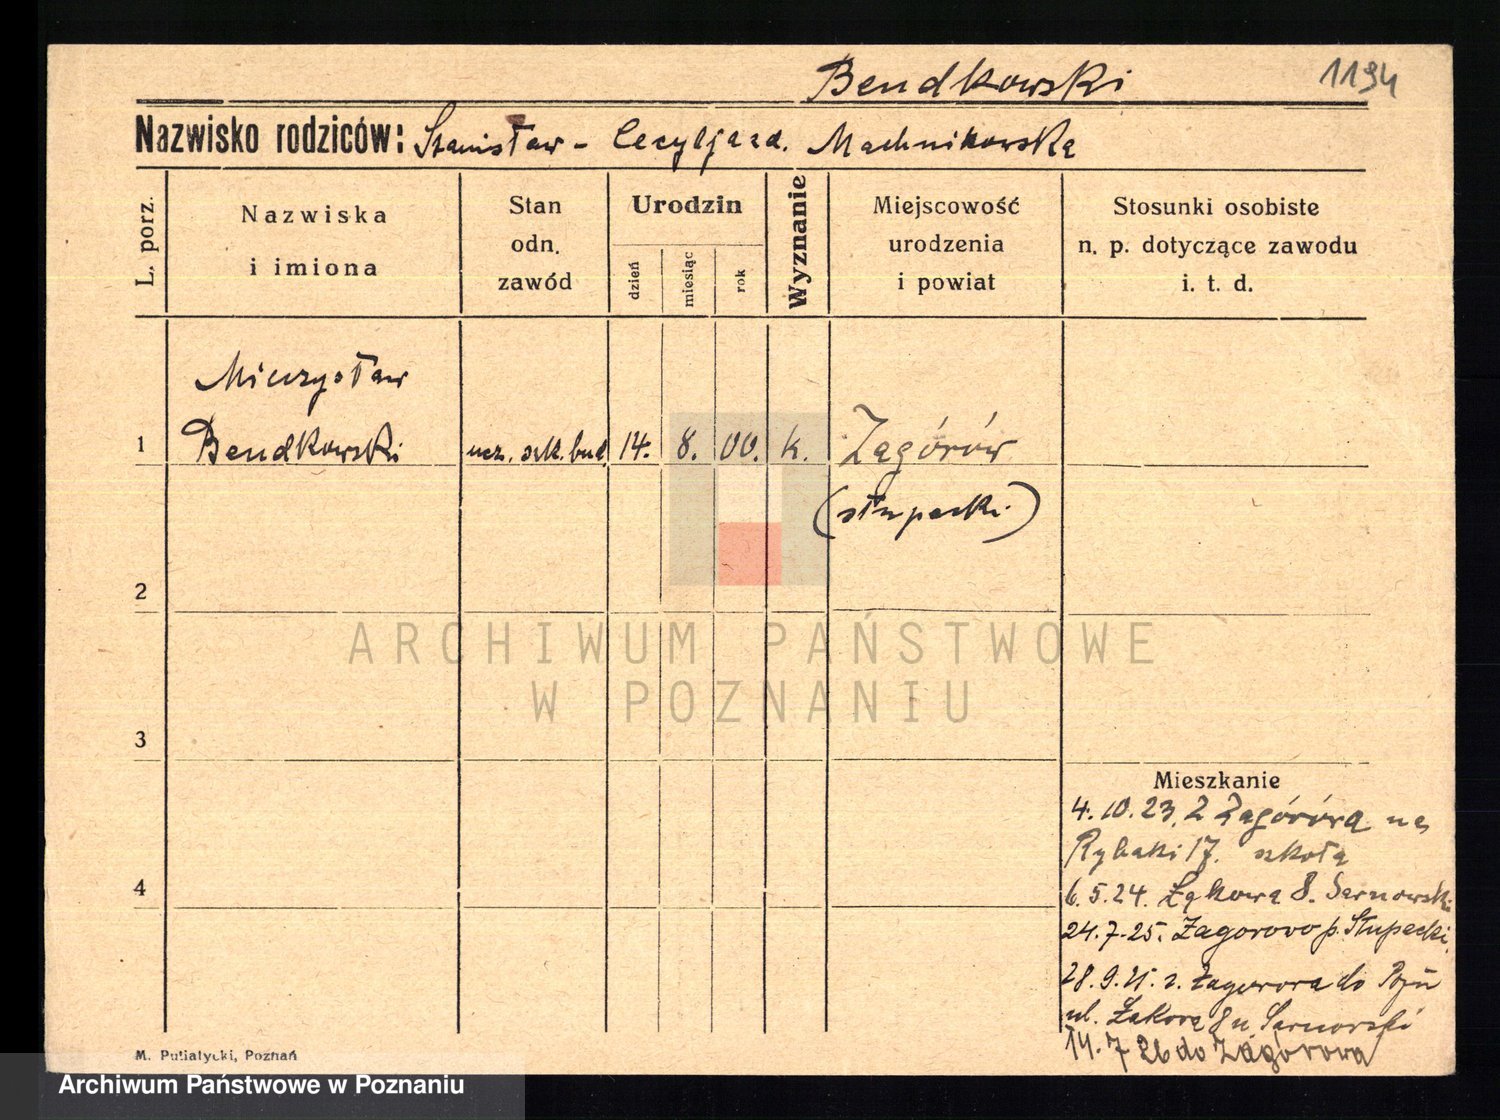 Bendkowski
1194
Nazwisko rodziców: Stanisław - Cecylja zd. Machnikowska
L. porz.
Nazwiska
i imiona
Stan
odn.
zawód
Urodzin
dzień
miesiąc
rok
Wyznanie
Miejscowość
urodzenia
i powiat
Stosunki osobiste
n. p. dotyczące zawodu
i. t. d.
Mieczysław
1 Bendkowski ucz. szk. bud. 14. 8. 00. k. Zagórów
(słupecki)
2
ARCHIWUM PAŃSTWOWE
W POZNANIU
3
Mieszkanie
4. 10. 23. z Zagórowa na
Rybaki 17. szkoła
4
6. 5. 24. Łąkowa 8. Sarnowski
24. 7. 25. Zagorowo p. Słupecki
28. 9. 25. z. Zagorowa do Pozn
ul. Łąkowa 8 u. Sarnowski
14. 7 26 do Zagorowa
M. Putiatycki, Poznań
Archiwum Państwowe w Poznaniu